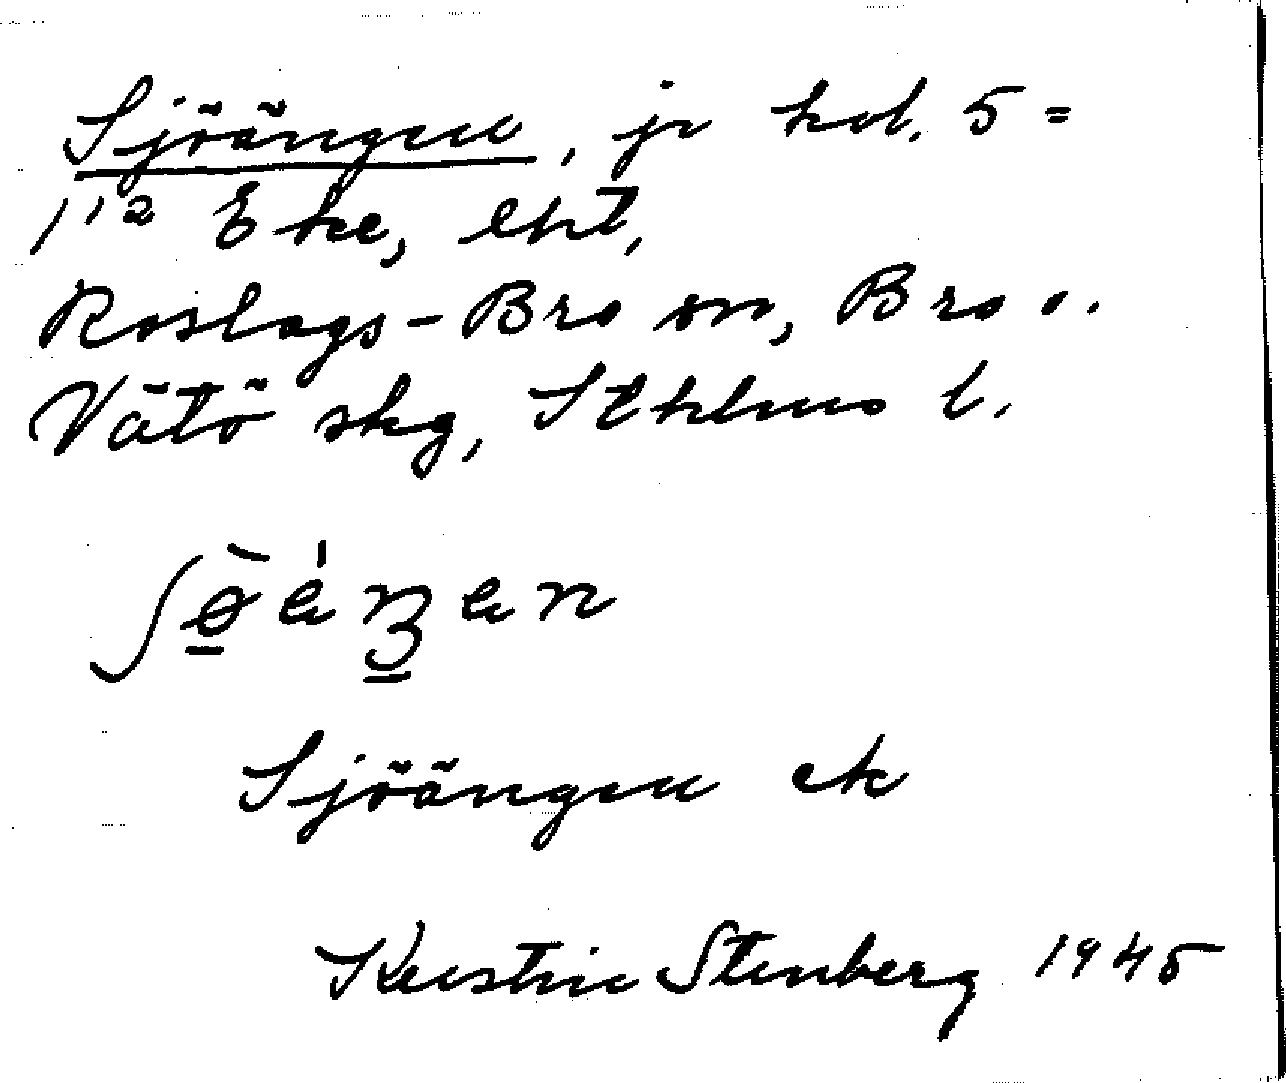 Sjöängen, jr kol. 5 =
1¹² Eke, lht,
Roslags-Bro sn, Bro o.
Vätö skg, Sthlms l.
Sjöängen ek
Kerstin Stenberg 1945